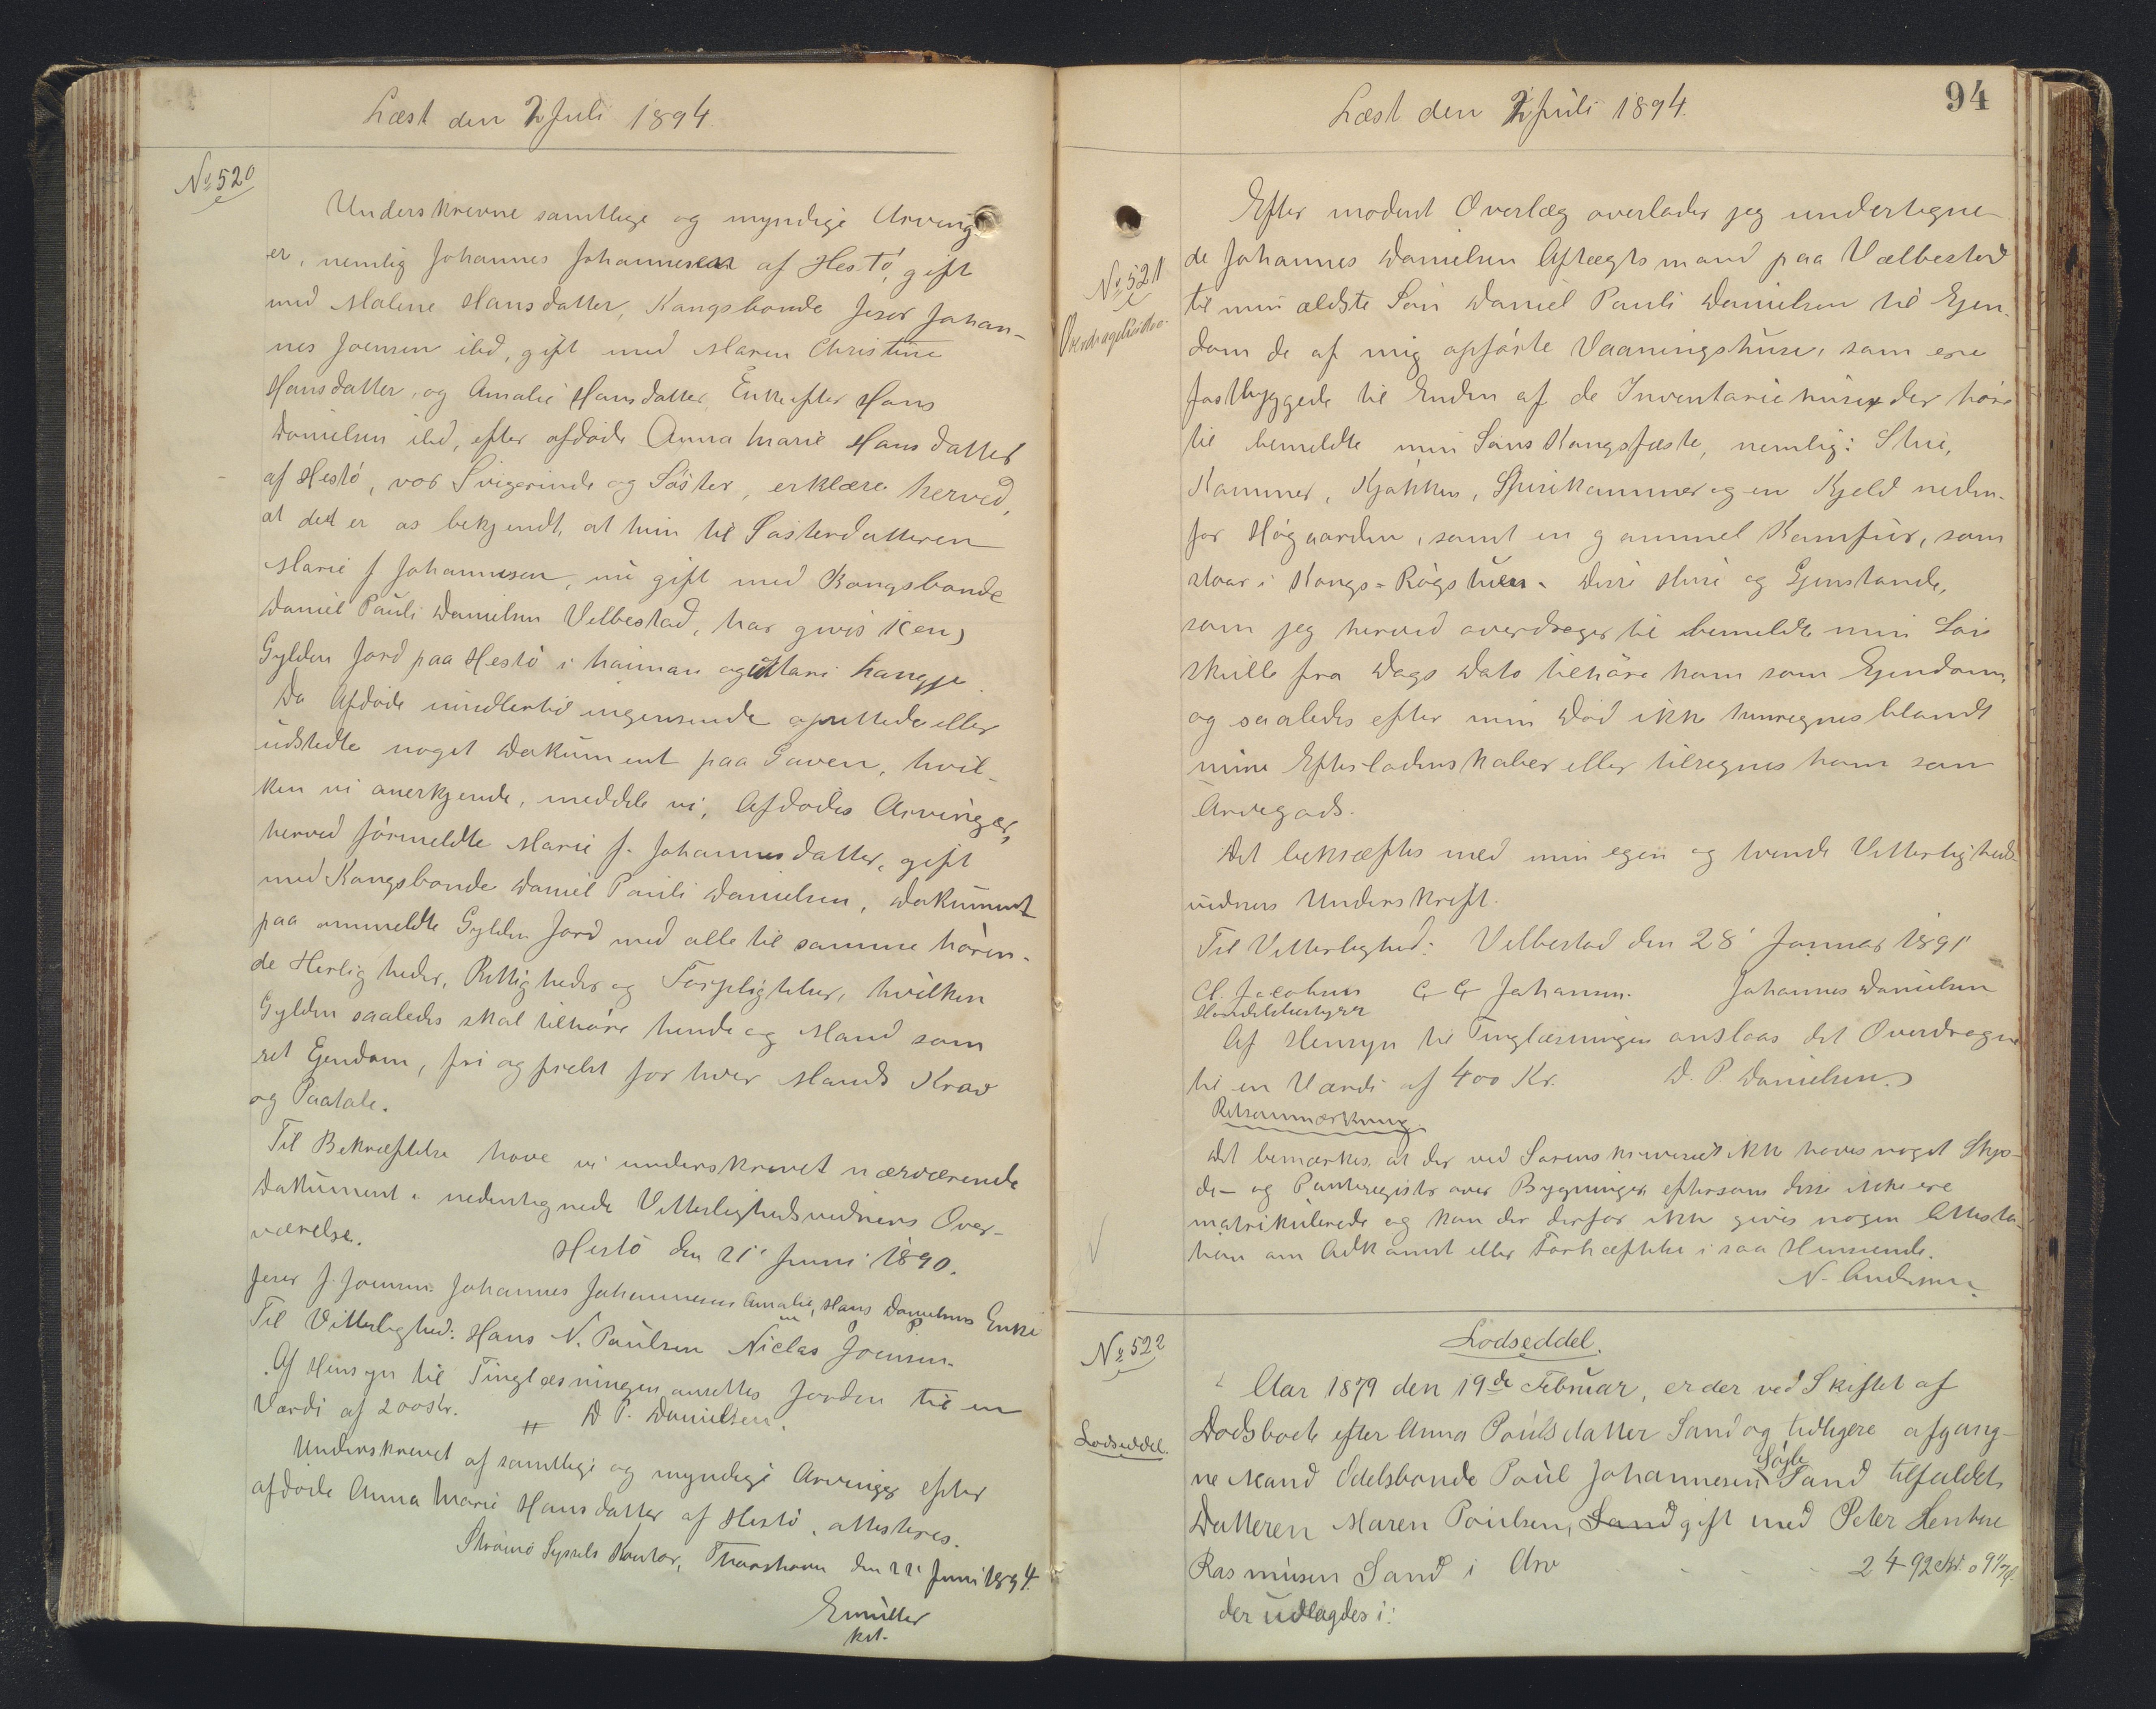 Læst den 2 Juli 1894
No 520
Underskrevne samtlige og myndige Arving-
er, nemlig Johannes Johannesen af Hestö, gift
med Malene Hansdatter, Kongsbonde Jeser Johan-
nes Joensen ibid, gift med Maren Christine
Hansdatter, og Amalie Hansdatter Enke efter Hans
Danielsen ibd, efter afdöde Anna Marie Hansdatter
af Hestö, vor Svigerinde og Söster, erklære herved,
at det er os bekjendt, at hun til Sösterdatteren
Marie J Johannesen, nu gift med Kongsbonde
Daniel Pauli Danielsen Velbestad, har givet 1 (en)
Gylden Jord paa Hestö i haiman og uttari hangje
Da Afdöde imidlertid ingensinde oprettede eller
udstedte noget Dokument paa Gaven, hvil-
ken vi anerkjende, meddele vi, Afdödes Arvinger,
herved förmeldte Marie J. Johannesdatter, gift
med Kongsbonde Daniel Pauli Danielsen, Dokument
paa ommeldte Gylden Jord med alle til samme hören-
de Herligheder, Rettigheder og Forpligtelser, hvilken
Gylden saaledes skal tilhöre hende og Mand som
ret Ejendom, fri og frelst for hver Mands Krav
og Paatale.
Til Bekræftelse have vi underskrevet nærværende
Dokument i nedentegnede Vitterlighedsvidners Over-
værelse.
Hestö den 21' Juni 1890.
Jeser J. Joensen Johannes Johannesen Amalie, Hans Danielsens Enke
Til Vitterlighed: Hans N. Paulsen Niclas Joensen
Af Hensyn til Tinglæsningen ansættes Jorden til en
Værdi af 200 Kr. D P. Danielsen.
Underskrevet af samtlige og myndige Arvinger efter
afdöde Anna Marie Hansdatter af Hestö, attesteres.
Strömö Syssels Kontor, Thorshavn den 22' Juni 1894
kst.
Læst den 2 Juli 1894.
94
No 521
Efter modent Overlæg overlader jeg undertegne-
de Johannes Danielsen Aftægtsmand paa Vælbestad
til min ældste Sön Daniel Pauli Danielsen til Ejen-
dom de af mig opförte Vaaningshuse, som ere
fastbyggede til Enden af de Inventariehuse, der höre
til bemeldte min Söns Kongsfæste, nemlig: Stue,
Kammer, Kjökken, Spisekammer og en Kjeld neden-
for Högaarden, samt en gammel Komfur, som
staar i Kongs-Rögstuen. Disse Huse og Gjenstande,
som jeg herved overdrager til bemeldte min Sön
skulle fra Dags Dato tilhöre ham som Ejendom,
og saaledes efter min Död ikke henregnes blandt
mine Efterladenskaber eller tilregnes ham som
Arvegods.
Det bekræftes med min egen og tvende Vitterligheds-
vidners Underskrift.
Til Vitterlighed: Velbestad den 28' Januar 1891
Cl. Jacobsen G G Johansen. Johannes Danielsen
Handelsbestyrer
Af Hensyn til Tinglæsningen anslaas det Overdragne
til en Værdi af 400 Kr. D. P. Danielsen.
Retsanmærkning
Det bemærkes, at der ved Sorenskriveriet ikke haves noget Skjö-
de- og Panteregister over Bygninger eftersom disse ikke ere
matrikulerede og kan der derfor ikke gives nogen Attesta-
tion om Adkomst eller Forhæftelse i saa Henseende.
N. Andersen
No 522
Lodseddel.
Lodseddel.
Aar 1879 den 19de Februar, er der ved Skiftet af
Dödsboet efter Anna Poulsdatter Sand og tidligere afgang-
ne Mand Odelsbonde Poul Johannesen Söjle Sand tilfaldet
Datteren Maren Poulsen, Sand gift med Peter Hentze
Rasmusen Sand i Arv 2492 Kr. 91/7
der udlagdes i: